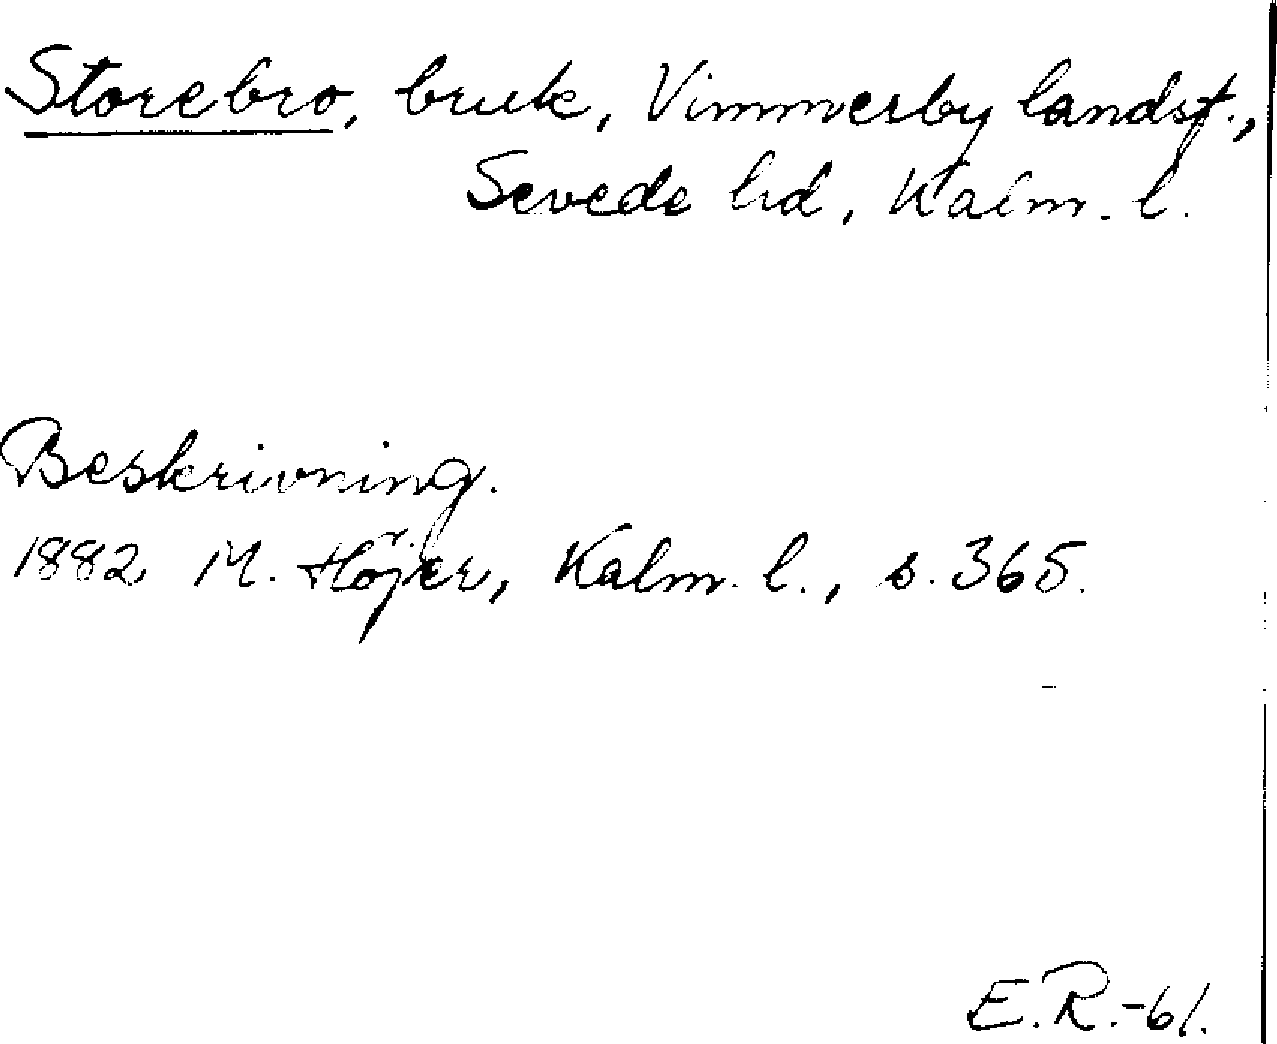 Storebro, bruk, Vimmerby landsf.,
Sevede hd, Kalm. l.
Beskrivning.
1882 M. Höjer, Kalm. l., s. 365.
E.R.-61.